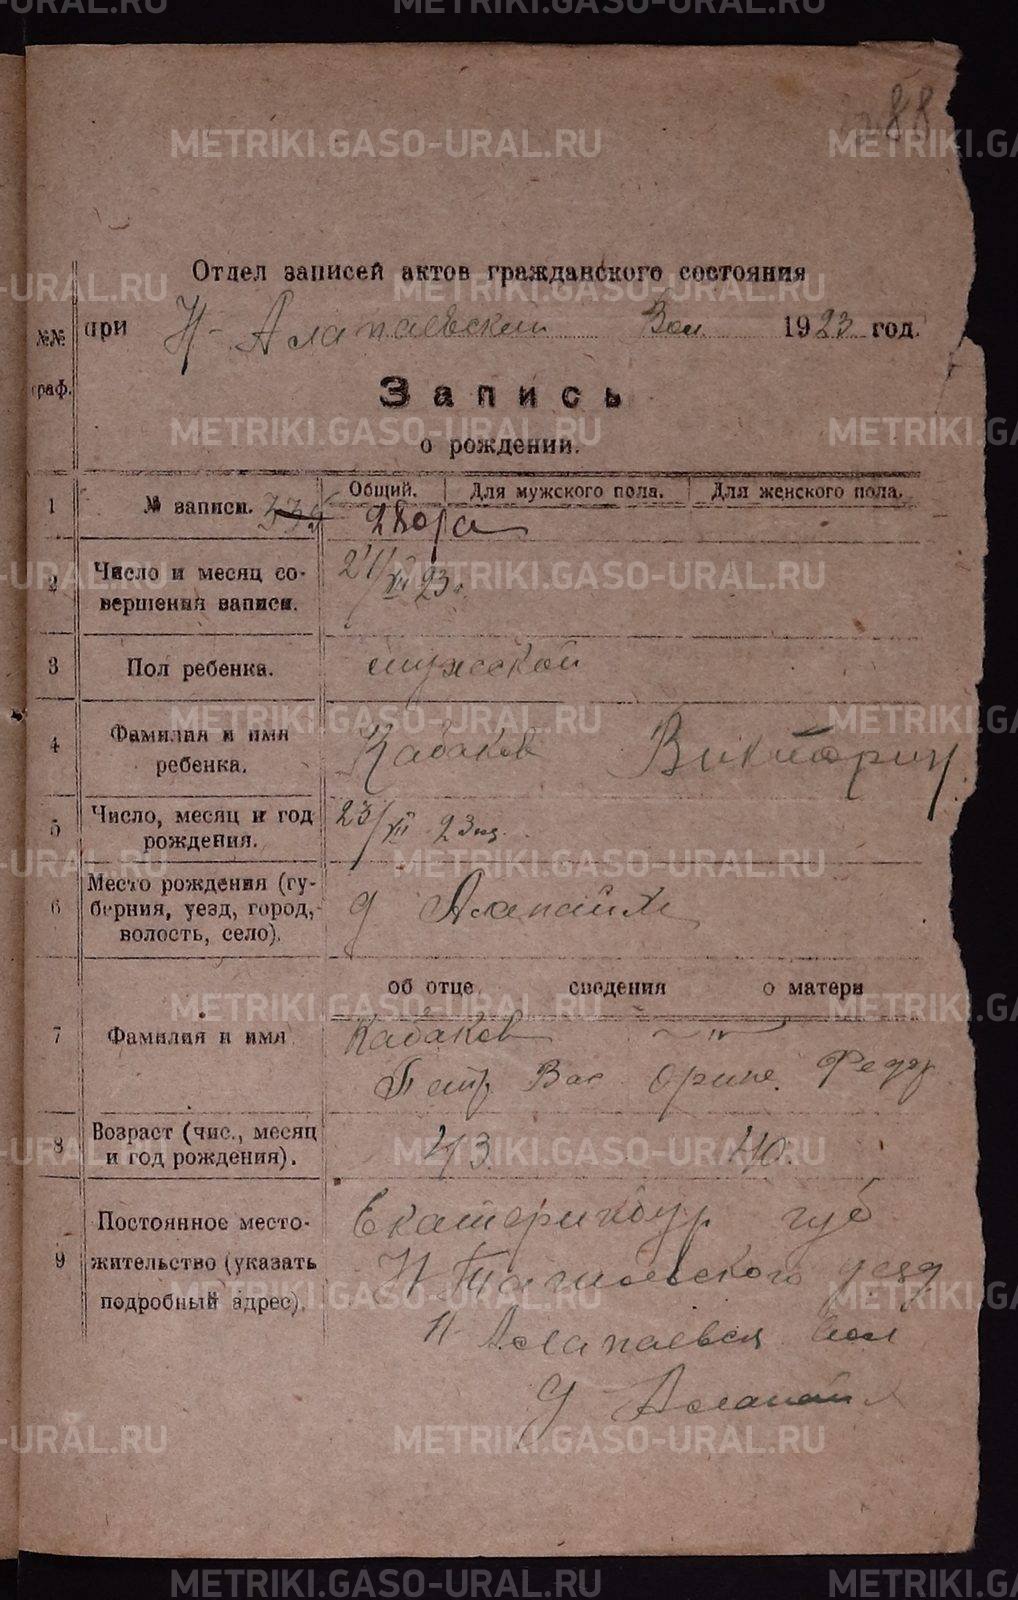 288
Отдел записей актов гражданского состояния
№№ граф.
при Н-Алапаевской Вол. 1923 год.
Запись
о рождении.
1 № записи. 335 Общий. Для мужского пола. Для женского пола.
2 Число и месяц совершения записи. 24/VII 23 г.
3 Пол ребенка. мужской
4 Фамилия и имя ребенка. Кабаков Викторин
5 Число, месяц и год рождения. 23/VII 23
6 Место рождения (губерния, уезд, город, волость, село). д Алапаиха
об отце сведения о матери
7 Фамилия и имя Кабаков
Петр Вас Орине. Федор
8 Возраст (чис., месяц и год рождения). 43. 40.
9 Постоянное местожительство (указать подробный адрес). Екатеринбур губ
Н Тагильского уезд
Н-Алапаевск вол
д Алапаиха
METRIKI.GASO-URAL.RU